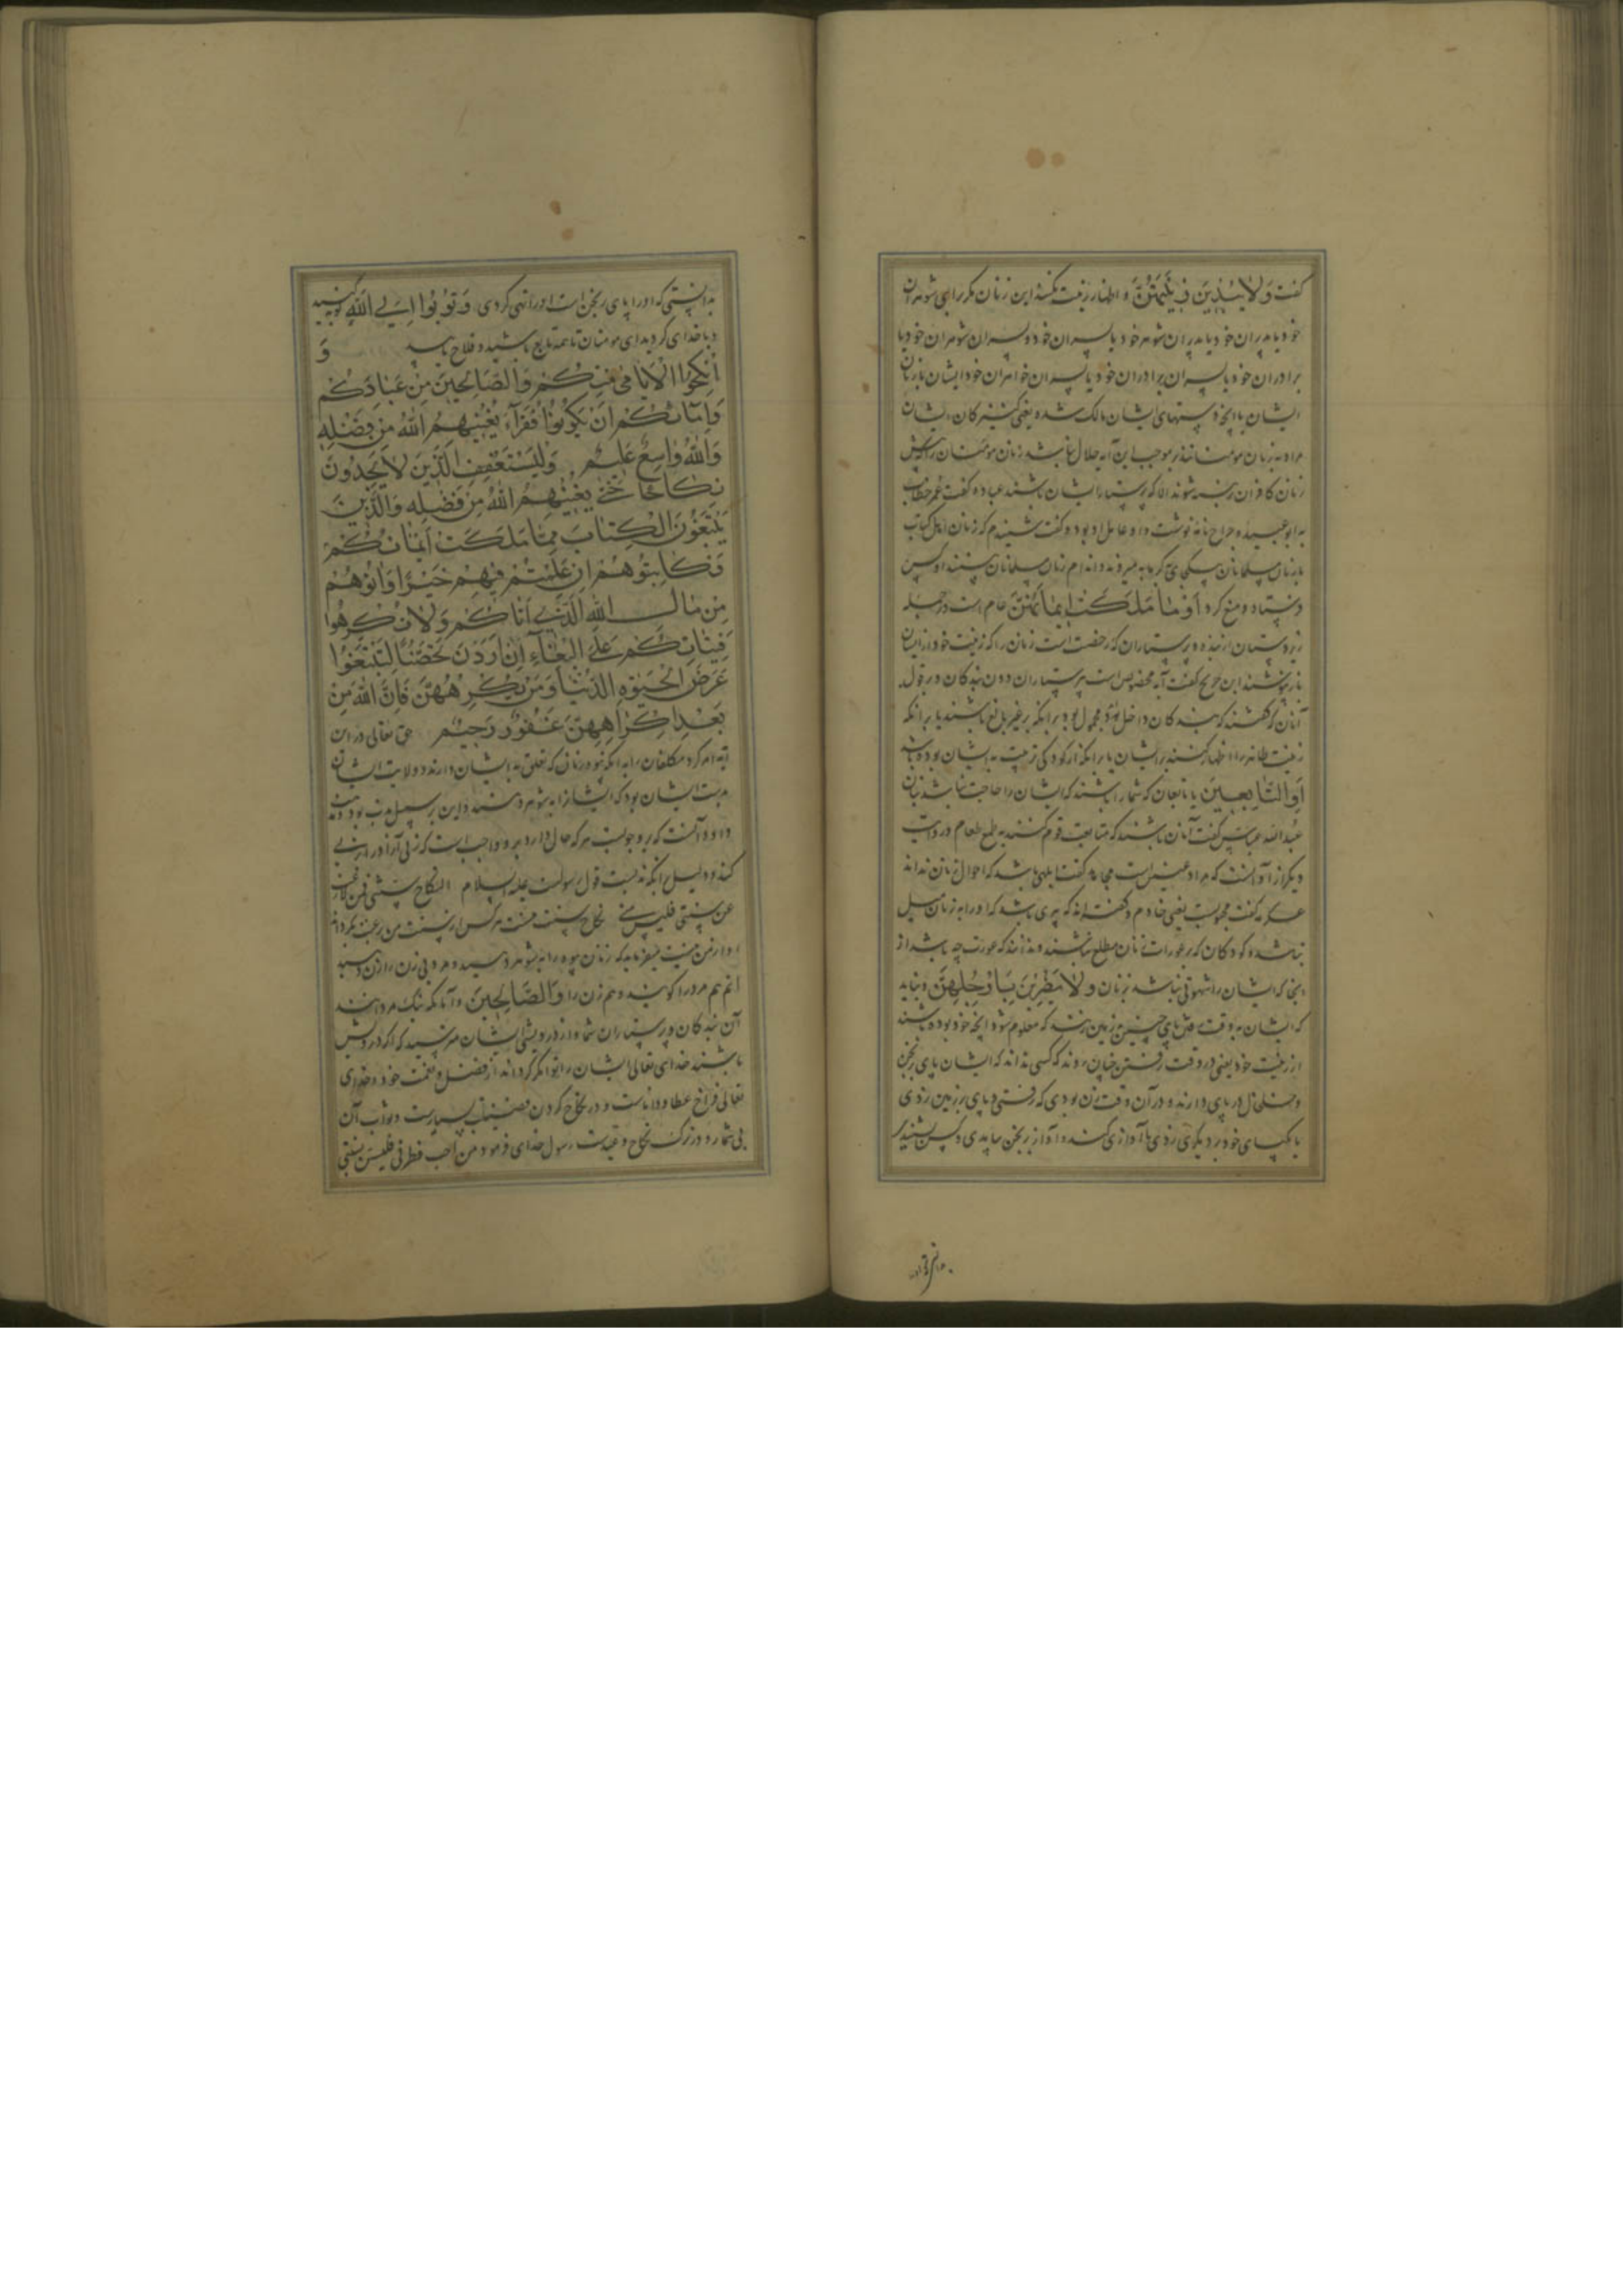 گفت وَلَا يُبْدِينَ زِينَتَهُنَّ و اظهار زینت نکنند این زنان مگر برای شوهران
خود یا پدران خود یا پدران شوهر خود یا پسران خود و پسران شوهران خود یا
برادران خود یا پسران برادران خود یا پسران خواهران خود ایشان یا زنان
ایشان یا آنچه دستهای ایشان مالک شده یعنی کنیزکان ایشان
مراد به زنان مومنانند بموجب این آیه حلال نباشد زنان مومنان را که پیش
زنان کافران برهنه شوند الا که پرستار ایشان باشند عباده گفت عمر خطاب
به ابو عبیده جراح نامه نوشت و او عامل او بود و گفت شنیدم که زنان اهل کتاب
با زنان مسلمانان بیکجای گرمابه میروند و اندام زنان مسلمانان بینند او کس
فرستاد و منع کرد أَوْ مَا مَلَكَتْ أَيْمَانُهُنَّ عام است در جمله
زیردستان از بنده و پرستاران که رخصت است زنان را که زینت خود از ایشان
باز نپوشند ابن جریج گفت آیه مخصوص است به پرستاران دون بندگان و در قول
آنان که گفتند که بندگان داخل بود محمول بود بر آنکه بر غیر بالغ باشند یا بر آنکه
زینت ظاهر را اظهار کنند بر ایشان یا بر آنکه از کودکی تربیت به ایشان بوده باشد
أَوِ التَّابِعِينَ یا تابعان که شما را باشند که ایشان را حاجت نباشد بزنان
عبدالله عباس گفت آنان باشند که متابعت قوم کنند به طمع طعام و روایت
دیگر از او آنست که مراد عنین است مجاهد گفت ابلهی باشد که احوال زنان نداند
عکرمه گفت مجبوبست یعنی خادم و گفته‌اند که پیری باشد که او را به زنان میل
نباشد و کودکان که بر عورات زنان مطلع نباشند و ندانند که عورت چه باشد از
آنجا که ایشان را شهوتی نباشد بزنان وَلَا يَضْرِبْنَ بِأَرْجُلِهِنَّ و نباید
که ایشان به وقت رفتن پای چنین بر زمین زنند که معلوم شود آنچه خود بوده باشند
از زینت خود یعنی در وقت رفتن چنان روند که کسی نداند که ایشان پای رنجن
و خلخال در پای دارند و در آن وقت زن بودی که رفتی و پای بر زمین زدی
یا یک پای خود بر دیگری زدی تا آوازی کند و آواز رنجن بیامدی و کس بشنیدی
بدانستی که او را پای رنجن است او را نهی کردی وَتُوبُوا إِلَى اللَّهِ توبه کنید
و با خدای گردید ای مومنان تا همه تابع باشید و فلاح یابید وَ
أَنْكِحُوا الْأَيَامَى مِنْكُمْ وَالصَّالِحِينَ مِنْ عِبَادِكُمْ
وَإِمَائِكُمْ إِنْ يَكُونُوا فُقَرَاءَ يُغْنِهِمُ اللَّهُ مِنْ فَضْلِهِ
وَاللَّهُ وَاسِعٌ عَلِيمٌ وَلْيَسْتَعْفِفِ الَّذِينَ لَا يَجِدُونَ
نِكَاحًا حَتَّى يُغْنِيَهُمُ اللَّهُ مِنْ فَضْلِهِ وَالَّذِينَ
يَبْتَغُونَ الْكِتَابَ مِمَّا مَلَكَتْ أَيْمَانُكُمْ
فَكَاتِبُوهُمْ إِنْ عَلِمْتُمْ فِيهِمْ خَيْرًا وَآتُوهُمْ
مِنْ مَالِ اللَّهِ الَّذِي آتَاكُمْ وَلَا تُكْرِهُوا
فَتَيَاتِكُمْ عَلَى الْبِغَاءِ إِنْ أَرَدْنَ تَحَصُّنًا لِتَبْتَغُوا
عَرَضَ الْحَيٰوةِ الدُّنْيَا وَمَنْ يُكْرِهْهُنَّ فَإِنَّ اللَّهَ مِنْ
بَعْدِ إِكْرَاهِهِنَّ غَفُورٌ رَحِيمٌ حق تعالی در این
آیه امر کرد مکلفان را به آنکه زنانی که تعلق به ایشان دارند و ولایت ایشان
بدست ایشان بود که ایشان را به شوهر دهند و این بر سبیل ندب بود و مذهب
داود آنست که بر وجوبست هر که حال دارد بر او واجب است که زنی آزاد را به زنی
کند و دلیل بر آنکه ندبست قول رسولست علیه السلام النکاح سنتی فمن رغب
عن سنتی فلیس منی نکاح سنت منست هر کس از سنت من رغبت بگرداند
او از من نیست میفرماید که زنان بیوه را به شوهر دهید و مرد بی زن را زن دهید
ایم هم مرد را گویند و هم زن را وَالصَّالِحِينَ و آنانکه نیک مردانند
از بندگان و پرستاران شما و از درویشی ایشان مترسید که اگر درویش
باشند خدای تعالی ایشان را توانگر گرداند از فضل و نعمت خود و خدای
تعالی فراخ عطا و داناست و در نکاح کردن فضیلت بسیارست و ثواب آن
بی شمار و در ترک نکاح وعیدست رسول خدای فرمود من احب فطرتی فلیستن بسنتی